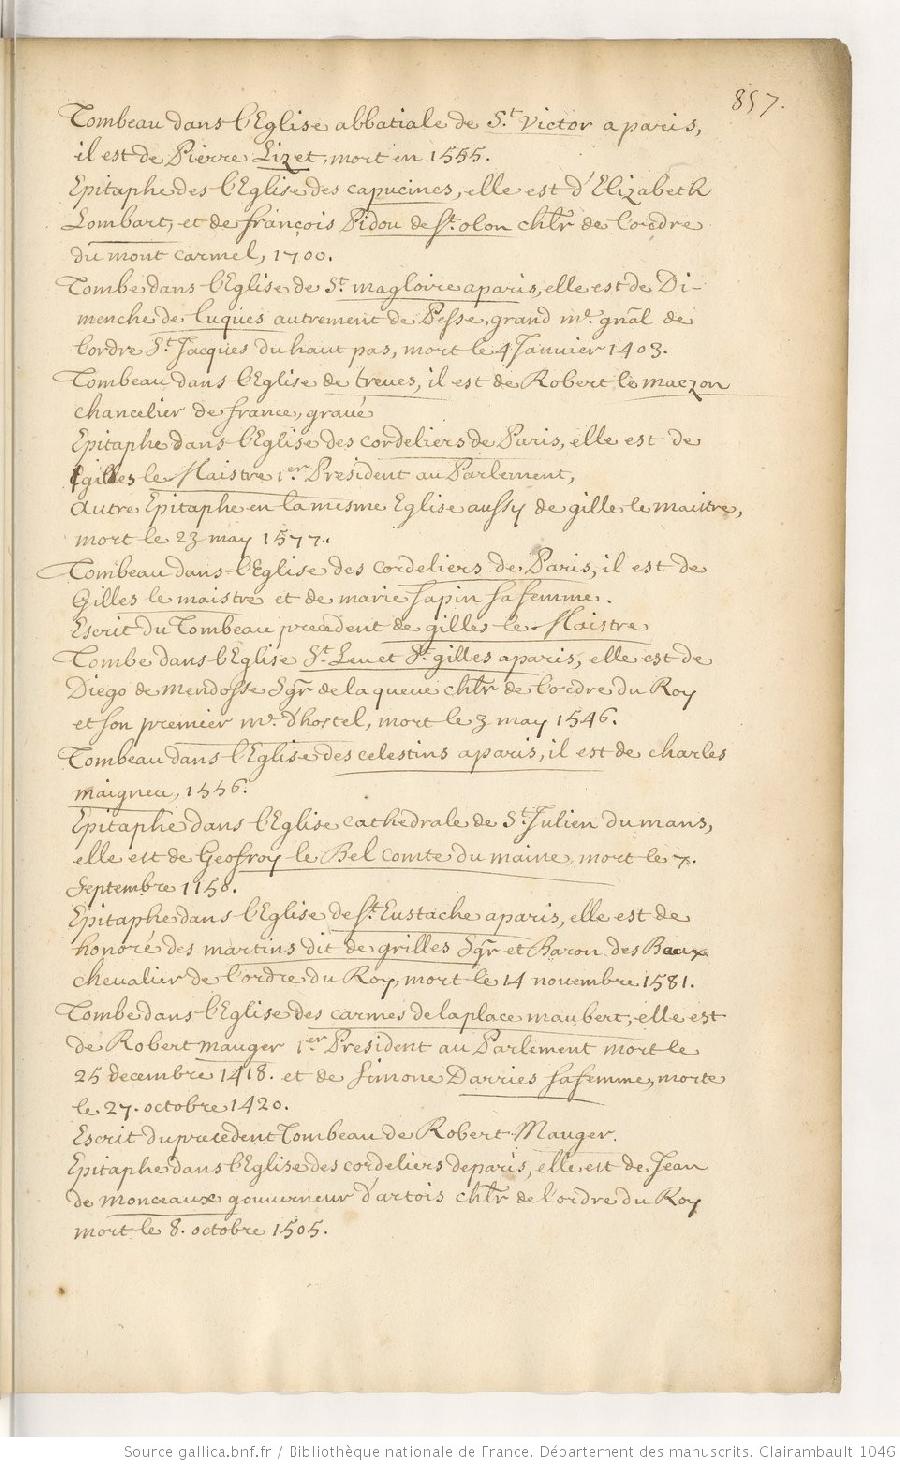 857.
Tombeau dans l'Eglise abbatiale de St. Victor a paris,
il est de Pierre Lizet, mort en 1555.
Epitaphe des l'Eglise des capucines, elle est d'Elizabeth
Lombart, et de françois Pidou de St. olon chlr de l'ordre
du mont carmel, 1700.
Tombe dans l'Eglise de St. magloire a paris, elle est de Di-
menche de luques autrement de Pesse, grand me. gnal de
l'ordre St Jacques du haut pas, mort le 4 Janvier 1403.
Tombeau dans l'Eglise de treves, il est de Robert le maczon
chancelier de france, gravé
Epitaphe dans l'Eglise des cordeliers de Paris, elle est de
gilles le Maistre 1er. President au Parlement,
autre Epitaphe en la mesme Eglise aussy de gille le maistre,
mort le 23 may 1577.
Tombeau dans l'Eglise des cordeliers de Paris, il est de
Gilles le maistre et de marie sapin sa femme.
Escrit du Tombeau precedent de gilles le Maistre
Tombe dans l'Eglise St. Leu et St. gilles a paris, elle est de
Diego de Mendosse Sgr de la queue chlr de l'ordre du Roy
et son premier me. d'hostel, mort le 3 may 1546.
Tombeau dans l'Eglise des celestins a paris, il est de charles
maigneu, 1556.
Epitaphe dans l'Eglise cathedrale de St. Julien du mans,
elle est de Geofroy le Bel comte du maine, mort le 7.
septembre 1150.
Epitaphe dans l'Eglise de St. Eustache a paris, elle est de
honoré des martins dit de grilles Sgr et Baron des Baux
chevalier de l'ordre du Roy, mort le 14 novembre 1581.
Tombe dans l'Eglise des carmes de la place maubert, elle est
de Robert mauger 1er. President au Parlement mort le
25 decembre 1418. et de Simone Darries sa femme, morte
le 27. octobre 1420.
Escrit du precedent Tombeau de Robert Mauger.
Epitaphe dans l'Eglise des cordeliers de paris, elle est de Jean
de monceaux gouverneur d'artois chlr de l'ordre du Roy
mort le 8. octobre 1505.
Source gallica.bnf.fr / Bibliothèque nationale de France. Département des manuscrits. Clairambault 1046